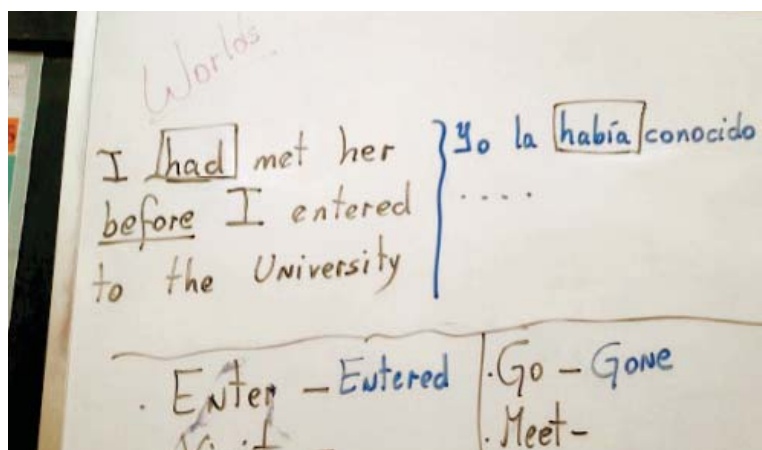 Worlds
I had met her
before I entered
to the University
Yo la había conocido
....
. Enter - Entered
. Go - Gone
. Meet -